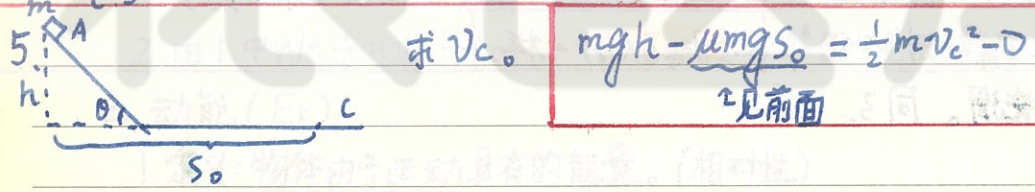 m
5.
A
h
θ
C
S₀
求 Vc。
mgh - μmgS₀ = ½mVc² - 0
见前面